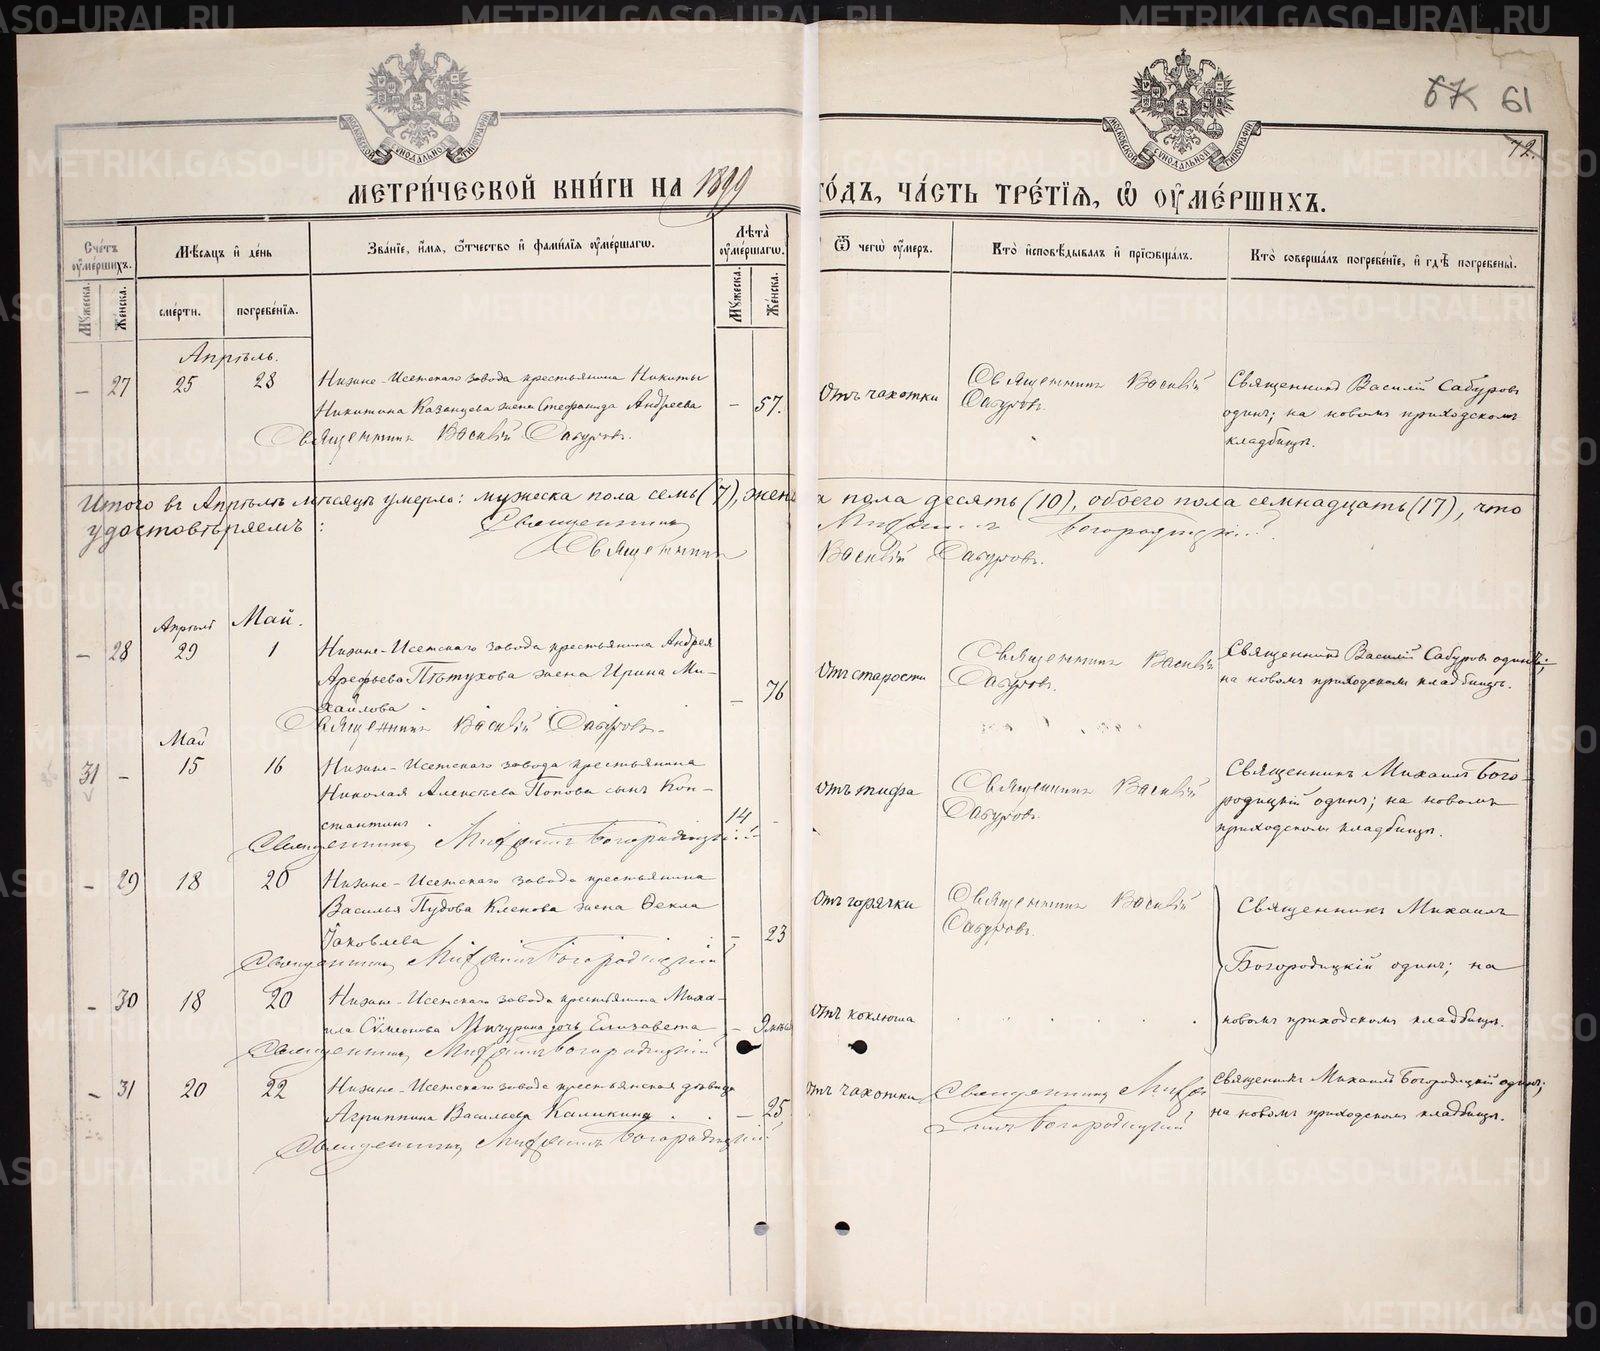 METRIKI.GASO-URAL.RU
67 61
12.
МЕТРИ́ЧЕСКОЙ КНИ́ГИ НА 1899 ГО́ДЪ, ЧА́СТЬ ТРЕ́ТІЯ, Ѿ ОУМЕ́РШИХЪ.
Сче́тъ оуме́ршихъ.
Мꙋжеска.
Же́нска.
Мѣ́сяцъ и҆ де́нь
сме́рти.
погребе́нія.
Зва́ніе, и҆́мя, ѻ҆́тчество и҆ фами́лія оуме́ршагѡ.
Лѣта̀ оуме́ршагѡ.
Мꙋжеска.
Же́нска.
Ѿ чегѡ̀ оу́меръ.
Кто̀ и҆сповѣ́дывалъ и҆ прїѡбща́лъ.
Кто̀ соверша́лъ погребе́ніе, и҆ гдѣ̀ погребены̀.
Апрѣль.
– 27 25 28
Нижне-Исетскаго завода крестьянина Никиты
Никитина Казанцева жена Стефанида Андреева
– 57.
Священникъ Василій Сабуровъ.
Отъ чахотки
Священникъ Василій
Сабуровъ.
Священникъ Василій Сабуровъ
одинъ; на новомъ приходскомъ
кладбищѣ.
Итого въ Апрѣлѣ мѣсяцѣ умерло: мужеска пола семь (7), женска пола десять (10), обоего пола семнадцать (17), что
удостовѣряемъ: Священникъ Михаилъ Богородицкій
Священникъ Василій Сабуровъ.
Май.
Апрѣль
– 28 29 1
Нижне-Исетскаго завода крестьянина Андрея
Арефьева Пѣтухова жена Ирина Ми-
хайлова
– 76
Священникъ Василій Сабуровъ.
Отъ старости
Священникъ Василій
Сабуровъ.
Священникъ Василій Сабуровъ одинъ;
на новомъ приходскомъ кладбищѣ.
Май
31 – 15 16
Нижне-Исетскаго завода крестьянина
Николая Алексѣева Попова сынъ Кон-
стантинъ.
14 –
Священникъ Михаилъ Богородицкій
Отъ тифа
Священникъ Василій
Сабуровъ.
Священникъ Михаилъ Бого-
родицкій одинъ; на новомъ
приходскомъ кладбищѣ.
– 29 18 20
Нижне-Исетскаго завода крестьянина
Василья Пудова Кленова жена Ѳекла
Яковлева
– 23
Священникъ Михаилъ Богородицкій
Отъ горячки
Священникъ Василій
Сабуровъ.
Священникъ Михаилъ
Богородицкій одинъ; на
новомъ приходскомъ кладбищѣ.
– 30 18 20
Нижне-Исетскаго завода крестьянина Миха-
ила Сѵмеонова Мичурина дочь Елизавета
–
Священникъ Михаилъ Богородицкій
Отъ коклюша
– 31 20 22
Нижне-Исетскаго завода крестьянская дѣвица
Агриппина Васильева Каликина
– 25
Священникъ Михаилъ Богородицкій
отъ чахотки
Священникъ Миха-
илъ Богородицкій
Священникъ Михаилъ Богородицкій одинъ;
на новомъ приходскомъ кладбищѣ.